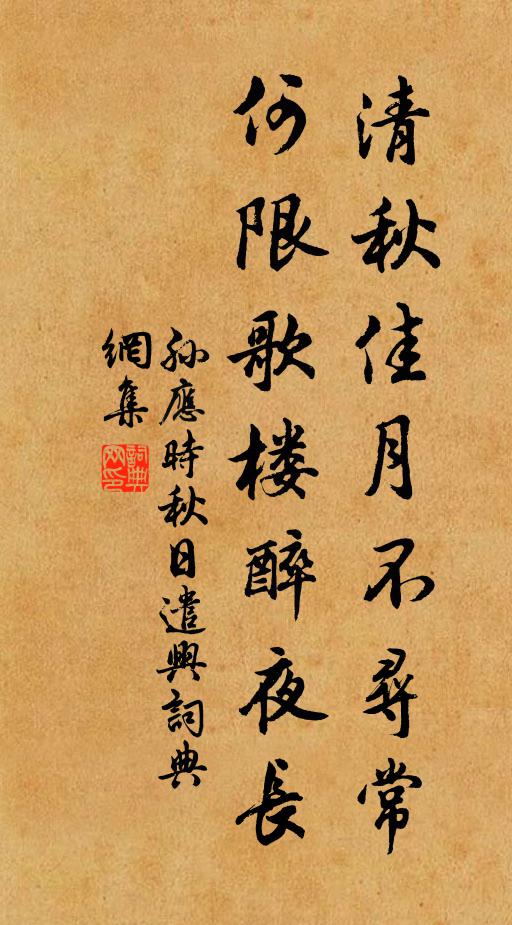 清秋佳月不尋常
何限歌楼醉夜長
孙應時秋日遣興詞典
網集
詞典
网印